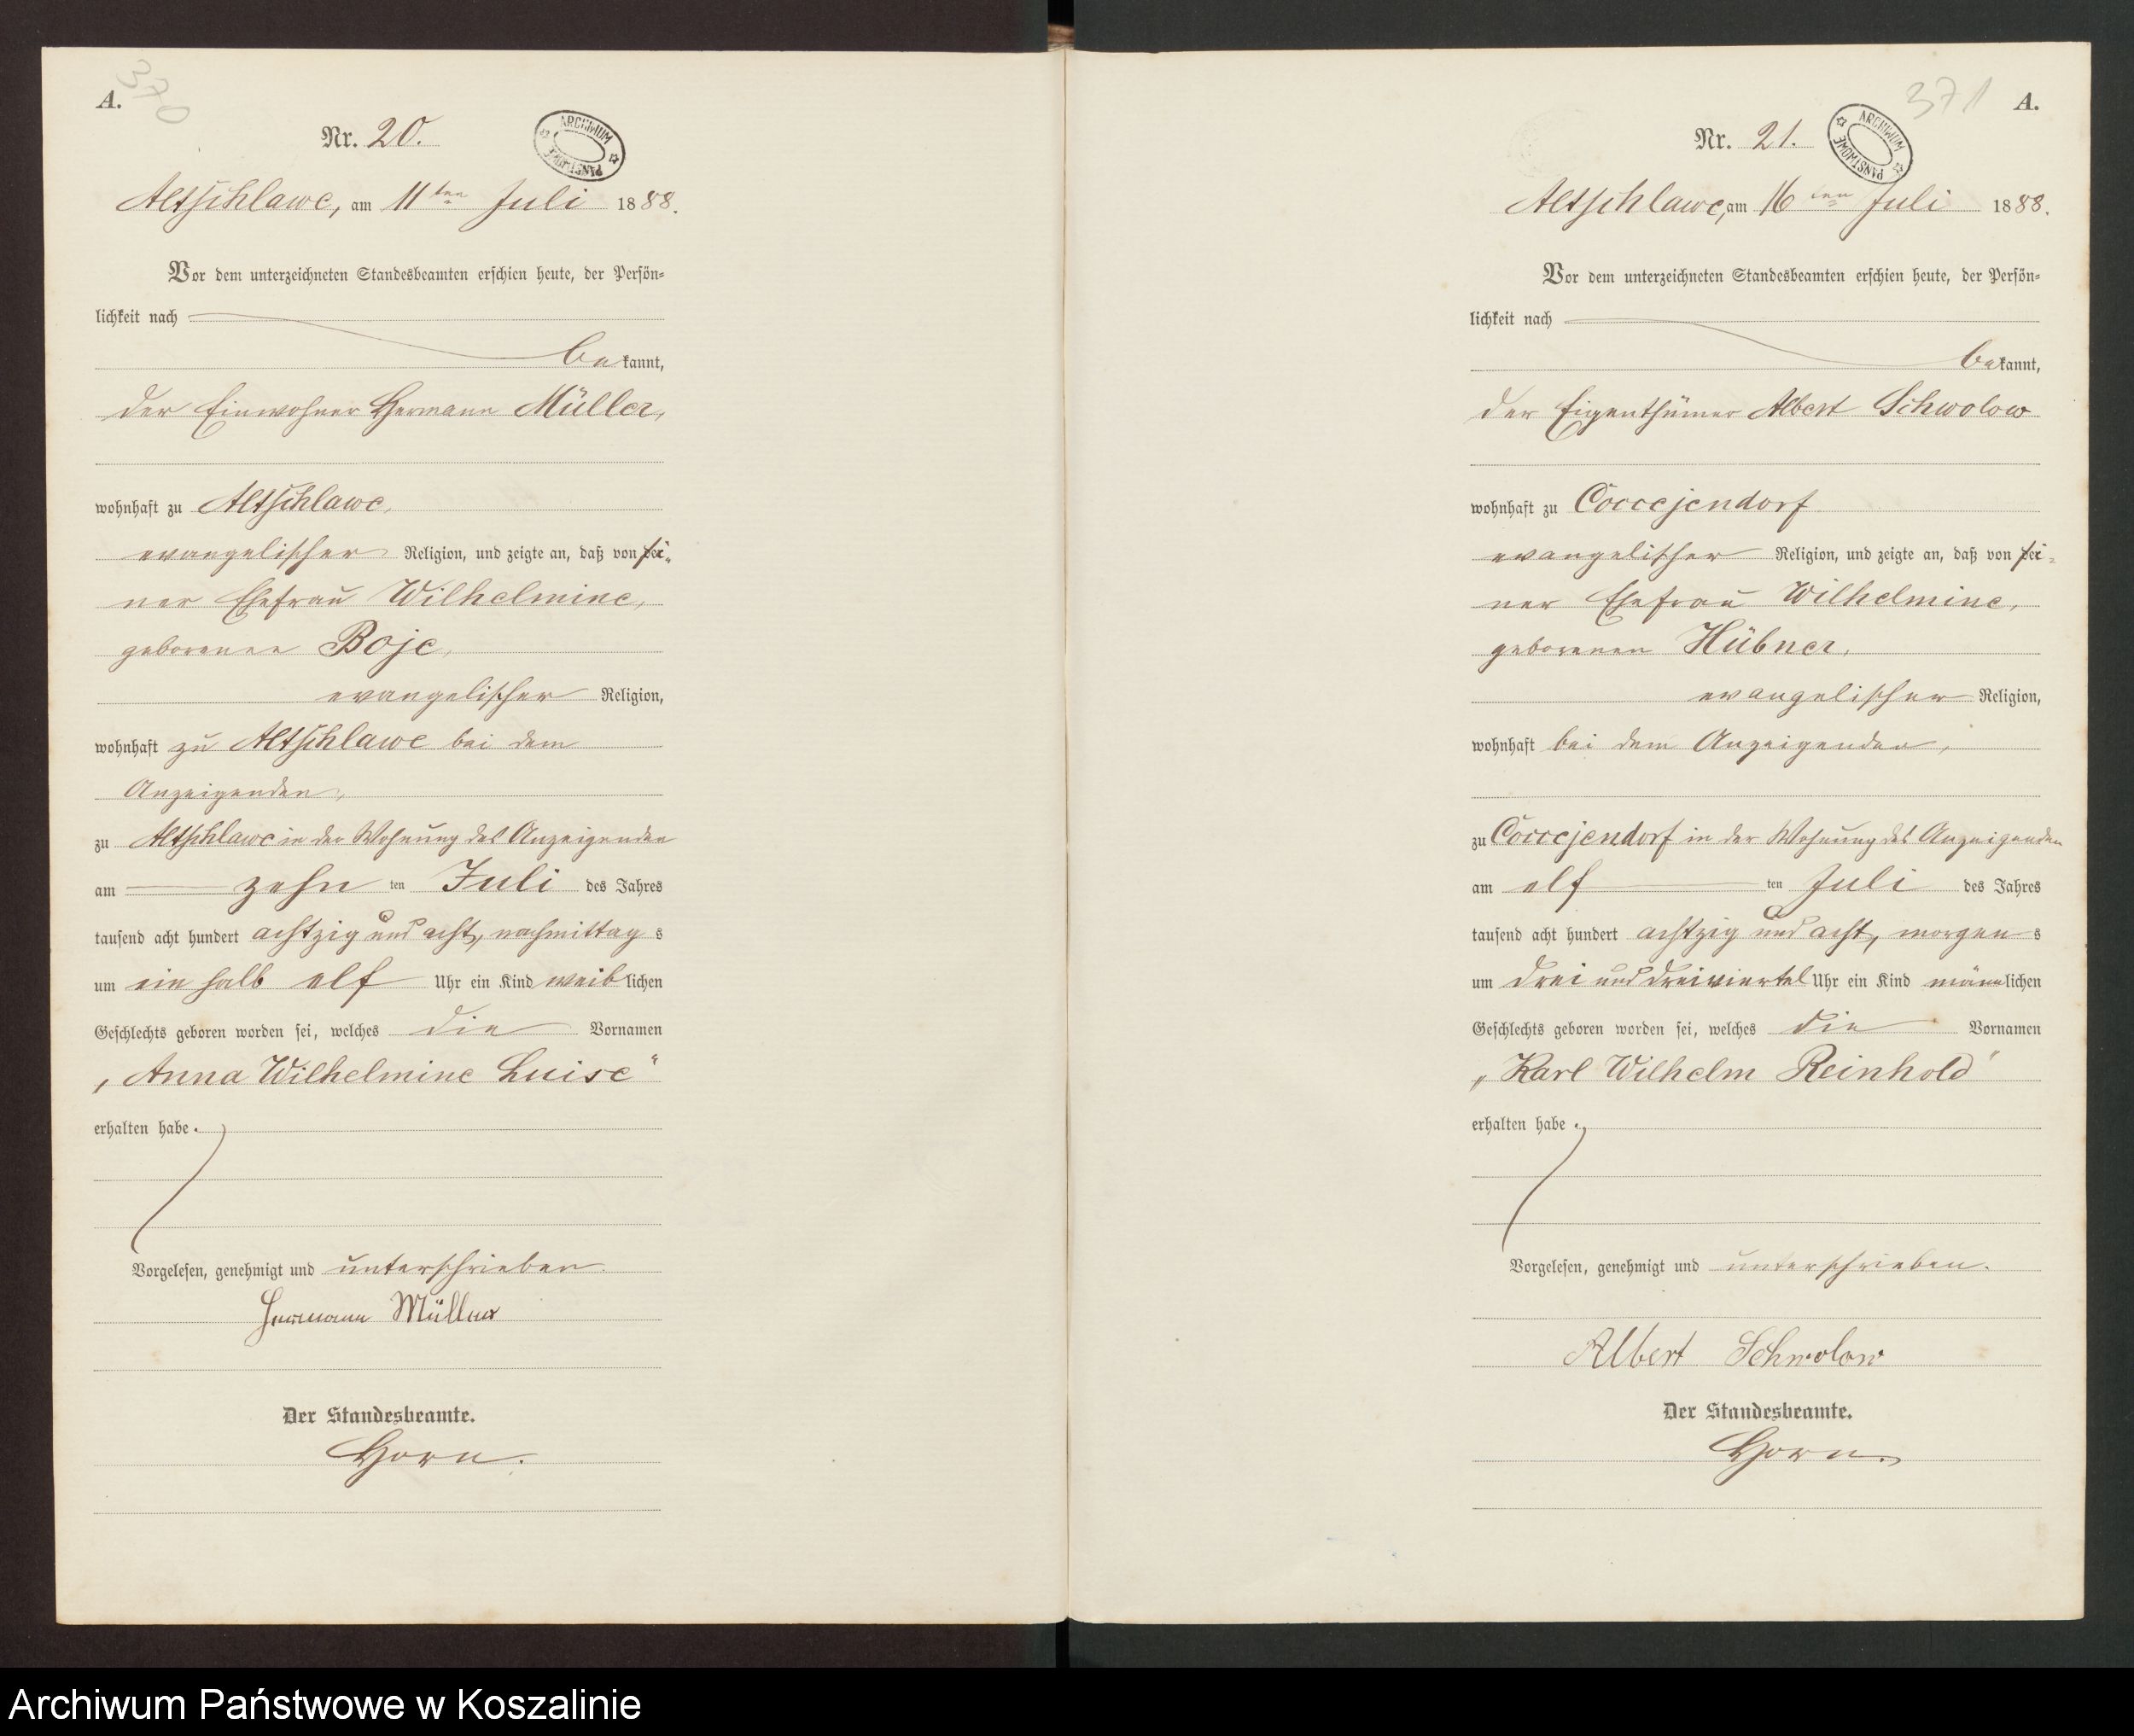 370
A.
Nr. 20.
ARCHIWUM PAŃSTWOWE
Altschlawe, am 11ten Juli 1888.
Vor dem unterzeichneten Standesbeamten erschien heute, der Persön-
lichkeit nach
bekannt,
der Einwohner Hermann Müller,
wohnhaft zu Altschlawe,
evangelischer Religion, und zeigte an, daß von sei-
ner Ehefrau Wilhelmine,
geborenen Boje,
evangelischer Religion,
wohnhaft zu Altschlawe bei dem
Anzeigenden,
zu Altschlawe in der Wohnung des Anzeigenden
am zehn ten Juli des Jahres
tausend acht hundert achtzig und acht, nachmittags
um ein halb elf Uhr ein Kind weiblichen
Geschlechts geboren worden sei, welches die Vornamen
„Anna Wilhelmine Luise“
erhalten habe.
Vorgelesen, genehmigt und unterschrieben.
Hermann Müller
Der Standesbeamte.
Horn.
371
A.
Nr. 21.
ARCHIWUM PAŃSTWOWE
Altschlawe, am 16ten Juli 1888.
Vor dem unterzeichneten Standesbeamten erschien heute, der Persön-
lichkeit nach
bekannt,
der Eigenthümer Albert Schwolow
wohnhaft zu Coccejendorf
evangelischer Religion, und zeigte an, daß von sei-
ner Ehefrau Wilhelmine,
geborenen Hübner,
evangelischer Religion,
wohnhaft bei dem Anzeigenden,
zu Coccejendorf in der Wohnung des Anzeigenden
am elf ten Juli des Jahres
tausend acht hundert achtzig und acht, morgens
um drei und dreiviertel Uhr ein Kind männlichen
Geschlechts geboren worden sei, welches die Vornamen
„Karl Wilhelm Reinhold“
erhalten habe.
Vorgelesen, genehmigt und unterschrieben.
Albert Schwolow
Der Standesbeamte.
Horn.
Archiwum Państwowe w Koszalinie